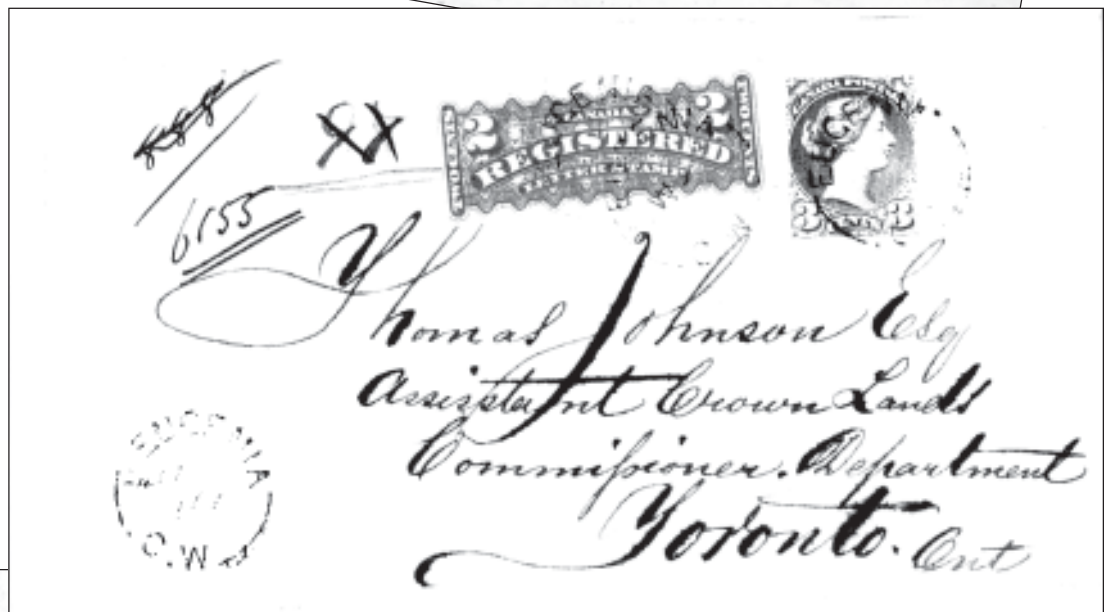 6155
2 CANADA 2
TWO CENTS REGISTERED TWO CENTS
LETTER STAMP
CANADA POSTAGE
3 CENTS 3
Thomas Johnson Esq
Assistant Crown Lands
Commiſsioner. Department
Toronto. Ont
EUGENIA
C.W.